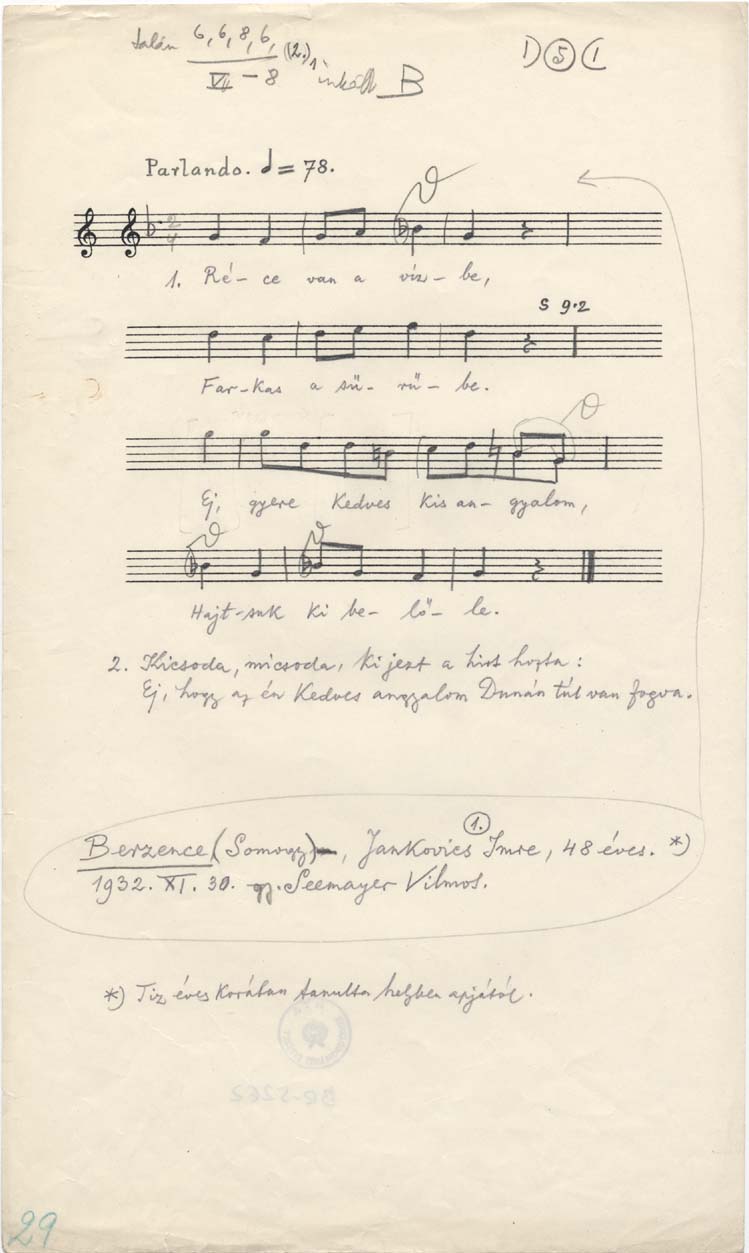 talán 6, 6, 8, 6, (2.) 1
VII – 8 inkább B
1) 5 (1
Parlando. = 78.
2
4
1. Ré- ce van a viz- be,
S 9.2
Far-kas a sü- rü- be.
Ej, gyere kedves kis an- gyalom,
Hajt-suk ki be- lő- le.
2. Kicsoda, micsoda, ki jezt a hirt hozta:
Ej, hogy az én kedves angyalom Dunán túl van fogva.
1.
Berzence (Somogy), Jankovics Imre, 48 éves. *)
1932. XI. 30. gy. Seemayer Vilmos.
*) Tiz éves korában tanulta helyben apjától.
BR-5262
29